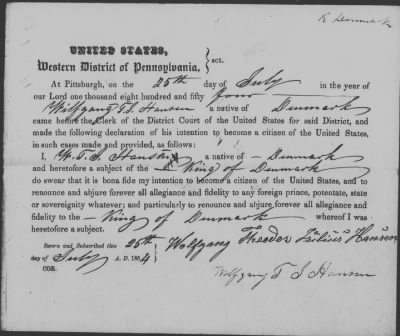 K Denmark
UNITED STATES,
Western District of Pennsylvania, } sct.
At Pittsburgh, on the 25th day of July in the year of
our Lord one thousand eight hundred and fifty four
Wilfgang T. S. Hansen a native of Denmark
came before the Clerk of the District Court of the United States for said District, and
made the following declaration of his intention to become a citizen of the United States,
in such cases made and provided, as follows:
I, W. T. S. Hansen a native of Denmark
and heretofore a subject of the King of Denmark
do swear that it is bona fide my intention to become a citizen of the United States, and to
renounce and abjure forever all allegiance and fidelity to any foreign prince, potentate, state
or sovereignty whatever; and particularly to renounce and abjure forever all allegiance and
fidelity to the King of Denmark whereof I was
heretofore a subject.
Sworn and Subscribed this 25th
day of July A. D. 1854
COR.
Wolfgang Theodor Hansen
Wolfgang T S Hansen